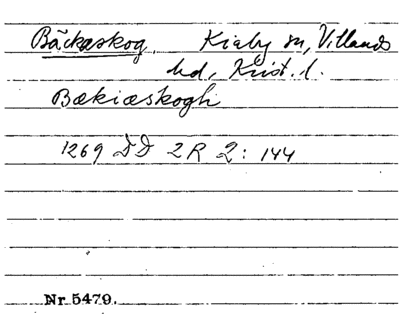 Bäckaskog. Kiaby sn, Villands
hd, Krist. l.
Bækiæskogh
1269 DD 2R 2: 144
Nr 5479.